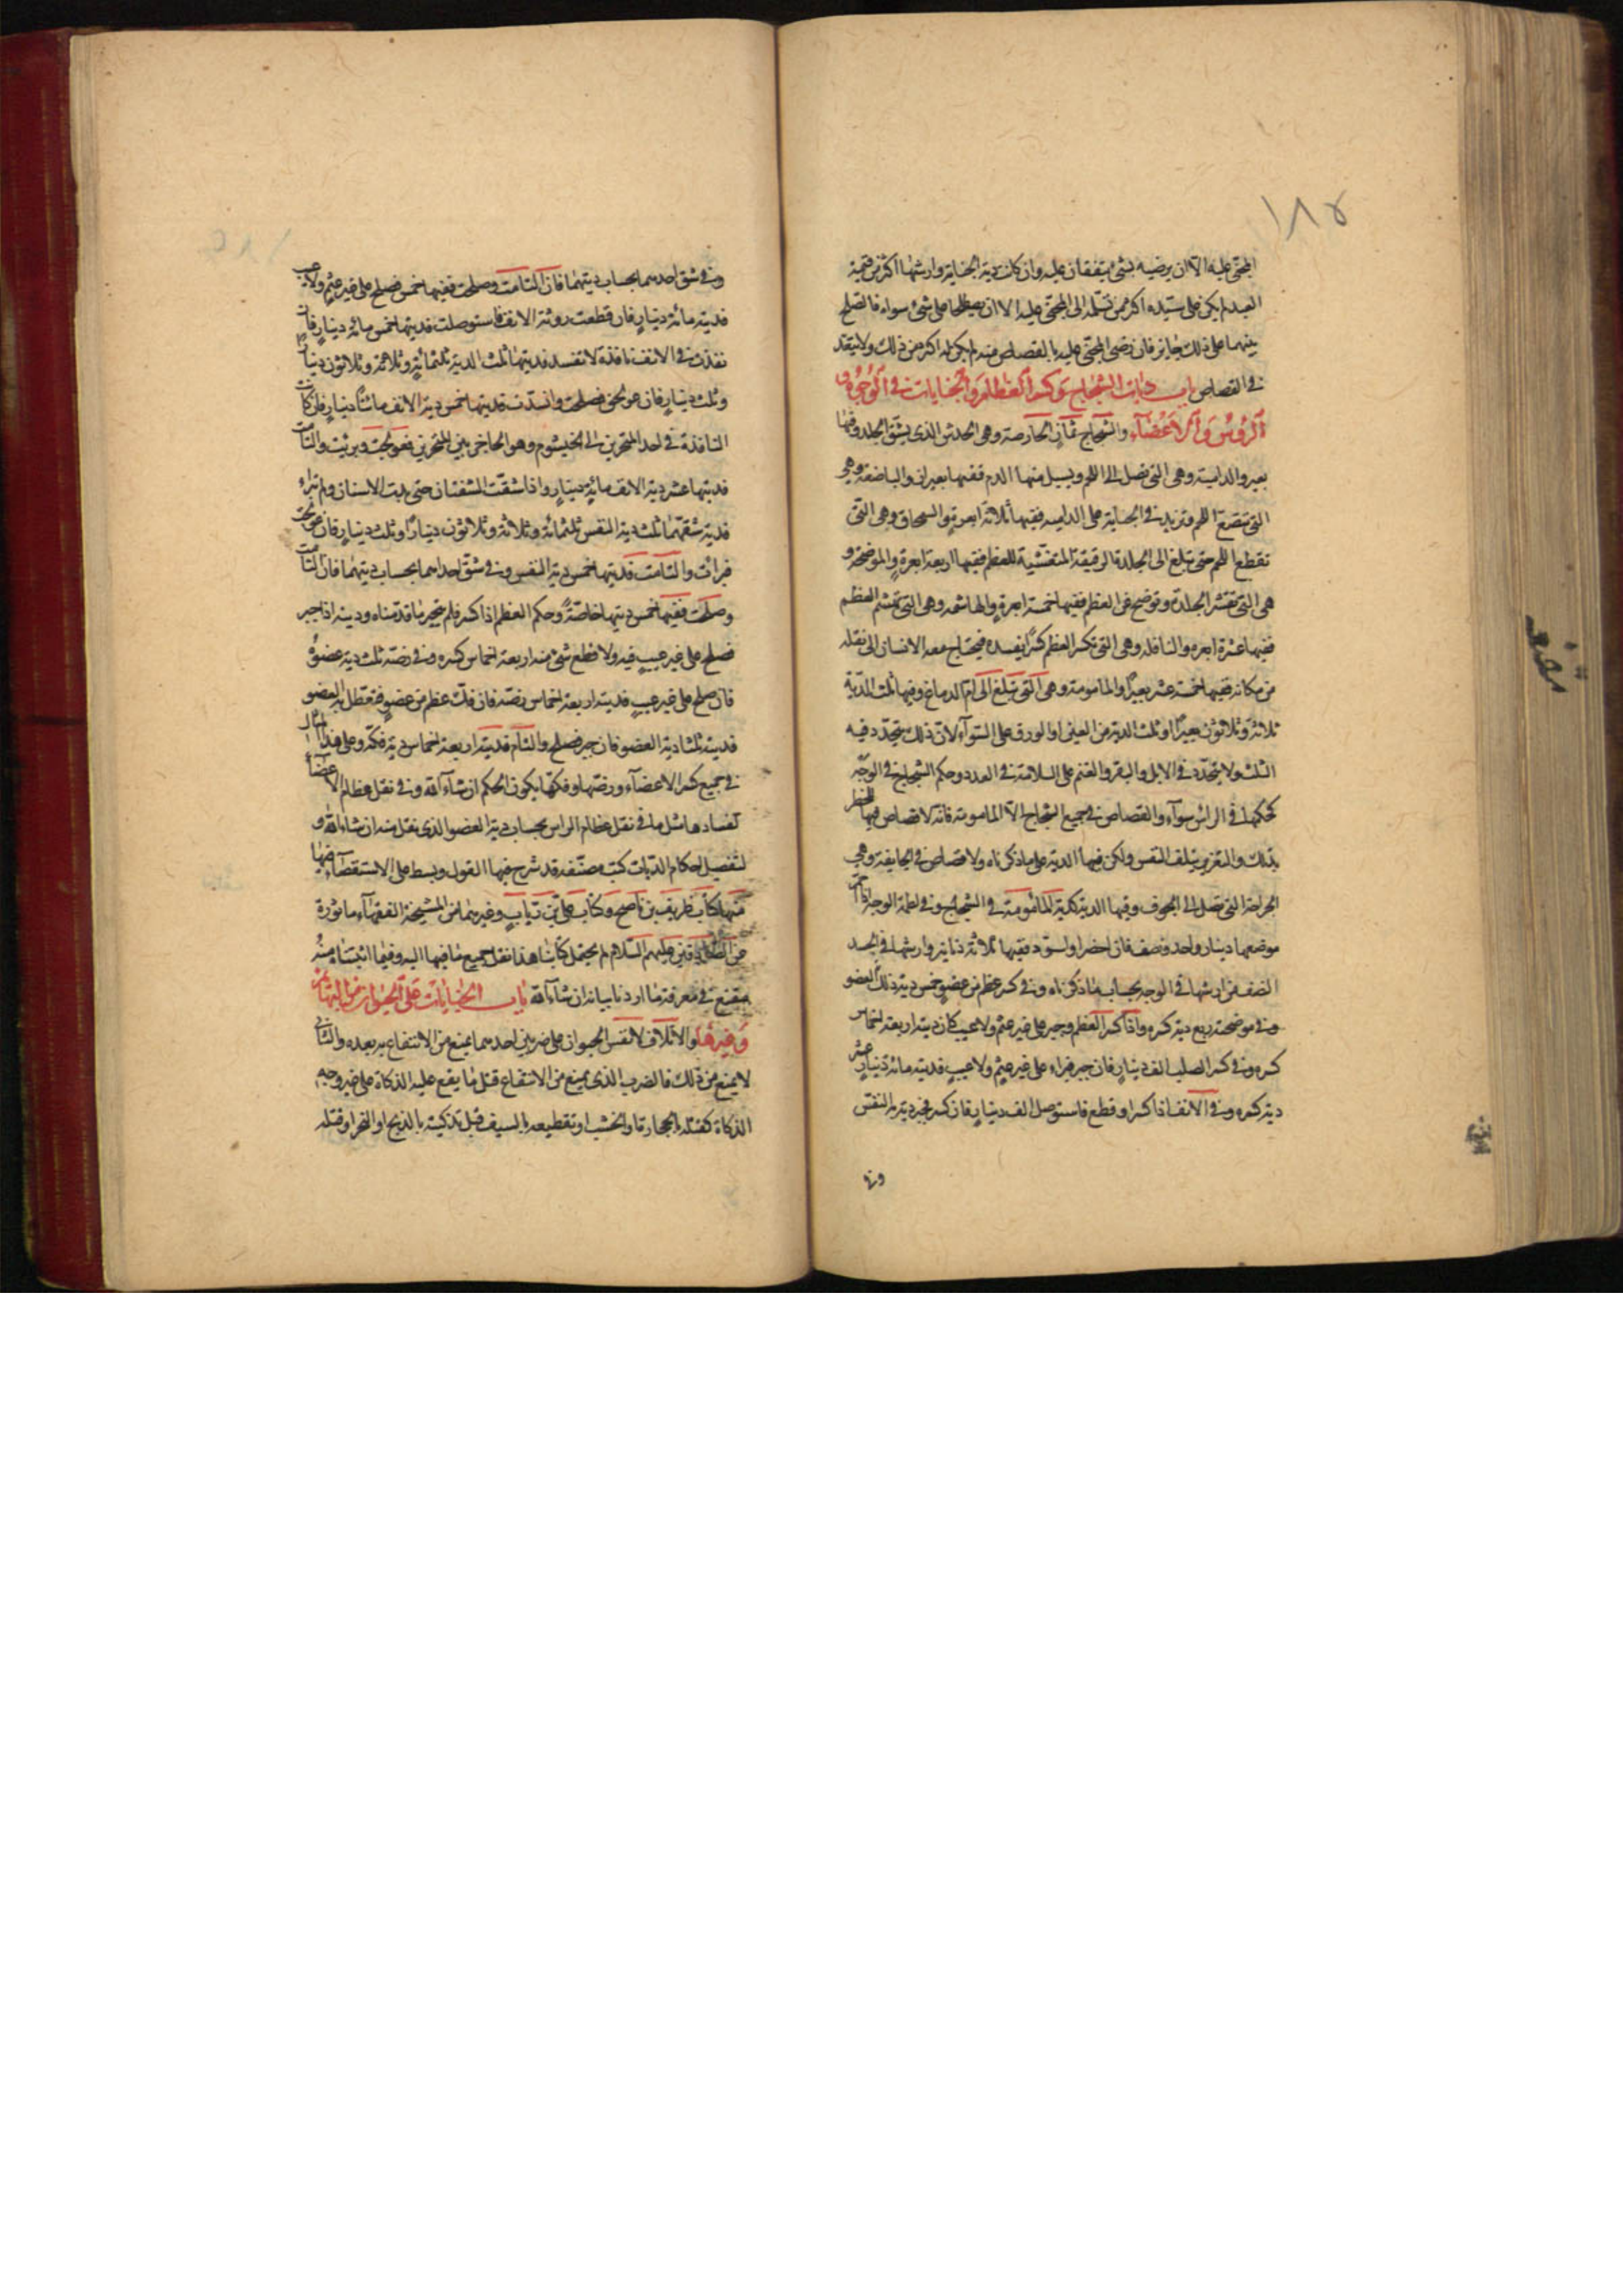 ١٨٥
المجنى عليه الا ان يرضيه بشئ يتفقان عليه وان كان دية الجناية وارشها اكثر من قيمة
العبد لم يكن على سيّده اكثر من تسلمه الى المجنى عليه الا ان يصطلحا على شئ سواء فالصلح
بينهما على ذلك جايز فان رضى المجنى عليه بالقصاص منه لم يكن له اكثر من ذلك ولا يتعد
فى القصاص باب ديات الشجاج وكسر العظام والجنايات فى الوجوه و
الرؤس والاعضاء والشجاج ثمان الحارصة وهى الخدش الذى يشق الجلد وفيها
بعير والدامية وهى التى تصل الى اللحم ويسيل منها الدم ففيها بعيران والباضعة وهى
التى تبضع اللحم وتزيد فى الجناية على الدامية ففيها ثلاثة ابعرة والسمحاق وهى التى
تقطع اللحم حتى تبلغ الى الجلدة الرقيقة المتغشية للعظم ففيها اربعة ابعرة والموضحة و
هى التى تقشر الجلدة وتوضح عن العظم ففيها خمسة ابعرة والهاشمه وهى التى تهشم العظم
ففيها عشرة ابعره والناقله وهى التى تكسر العظم كسرا يفسده فيحتاج معه الانسان الى نقله
من مكانه ففيها خمسة عشر بعيرا والمامومة وهى التى تبلغ الى ام الدماغ وفيها ثلث الدية
ثلاثة وثلاثون بعيرا او ثلث الدية من العين او الورق على السوآء لان ذلك يتحدد فيه
الثلث ولا يتحدد فى الابل والبقر والغنم على السلامة فى العدد وحكم الشجاج فى الوجه
كحكمها فى الراس سوآء والقصاص فى جميع الشجاج الا المامومة فانه لا قصاص فيها للخطر
بذلك والتغرير بتلف النفس ولكن فيها الدية على ما ذكرناه ولا قصاص فى الجايفة وهى
الجراحة التى تصل الى الجوف وفيها الدية كدية المامومة فى الشجاج وفى لطمة الوجه اذا احمر
موضعها دينار واحد ونصف فان اخضر او اسود ففيها ثلاثة دنانير وارشها فى الجسد
النصف من ارشها فى الوجه بحساب ما ذكرناه وفى كسر عظم من عضو خمس دية ذلك العضو
وفى موضحته ربع دية كسره واذا كسر العظم وجبر على غير عثم ولا عيب كان ديته اربعة اخماس
كسره وفى كسر الصلب الف دينار فان جبر فبراء على غير عثم ولا عيب فديته مائة دينار عشر
دية كسره وفى الانف اذا كسر او قطع فاستوصل الف دينار فان كسر فجبر ديته النفس
وفى
وفى شق احدهما بحساب ديتهما فان التأمت وصلحت ففيها خمس فصلح على غير عثم ولا عيب
فديته مائة دينار فان قطعت روثة الانف فاستوصلت فديتها خمس مائة دينار فان
نفذت فى الانف نافذة لا تفسد فديتها ثلث الدية ثلثمائة وثلاثة وثلاثون دينارا
وثلث دينار فان عولجت فصلحت وانسدت فديتها خمس دية الانف مائتا دينار فان كانت
النافذة فى احد المنخرين الى الخيشوم وهو الحاجز بين المنخرين فعولجت وبرئت والتأمت
فديتها عشر دية الانف مائة دينار واذا شقت الشفتان حتى بدت الاسنان ولم تبراء
فدية شقهما ثلث دية النفس ثلثمائة وثلاثة وثلاثون دينارا وثلث دينار فان عولجت
فبرائت والتأمت فديتها خمس دية النفس وفى شق احداهما بحساب ديتهما فان التأمت
وصلحت ففيها خمس ديتها خاصة وحكم العظم اذا كسر فلم ينجبر ما قدمناه وديته اذا جبر
فصلح على غير عيب فيه ولا قطع شئ منه اربعة اخماس كسره وفى رضّه ثلث دية عضوه
فان صلح على غير عيب فديته اربعة اخماس رضّه فان فك عظم من عضو فتعطل به العضو
فديته ثلثا دية العضو فان جبر فصلح والتأم فديته اربعة اخماس دية فكه وعلى هذا المثال
فى جميع كسر الاعضاء ورضها وفكها يكون الحكم ان شاء الله وفى نقل عظام الاعضاء
لفسادها مثل ما فى نقل عظام الراس بحساب دية العضو الذى نقل منه ان شاء الله و
لتفصيل احكام الديات كتب مصنفه قد شرح فيها القول وبسط على الاستقصاء فيها
منها كتاب ظريف بن ناصح وكتاب على بن رئاب وغيرهما من المشيخة الفقهاء ماثورة
عن الصادقين عليهم السلام لم يحتمل كتابنا هذا نقل جميع ما فيها اليه وفيما اثبتناه منه
مقنع فى معرفة ما اردنا بيانه ان شاء الله باب الجنايات على الحيوان من البهائم
وغيرها والاتلاف لانفس الحيوان على ضربين احدهما يمنع من الانتفاع به بعده والثانى
لا يمنع من ذلك فالضرب الذى يمنع من الانتفاع قتل ما يقع عليه الذكاة على غير وجه
الذكاة كقتله بالحجارة او الخشب او تقطيعه بالسيف قبل تذكيته بالذبح او النحر او قتله